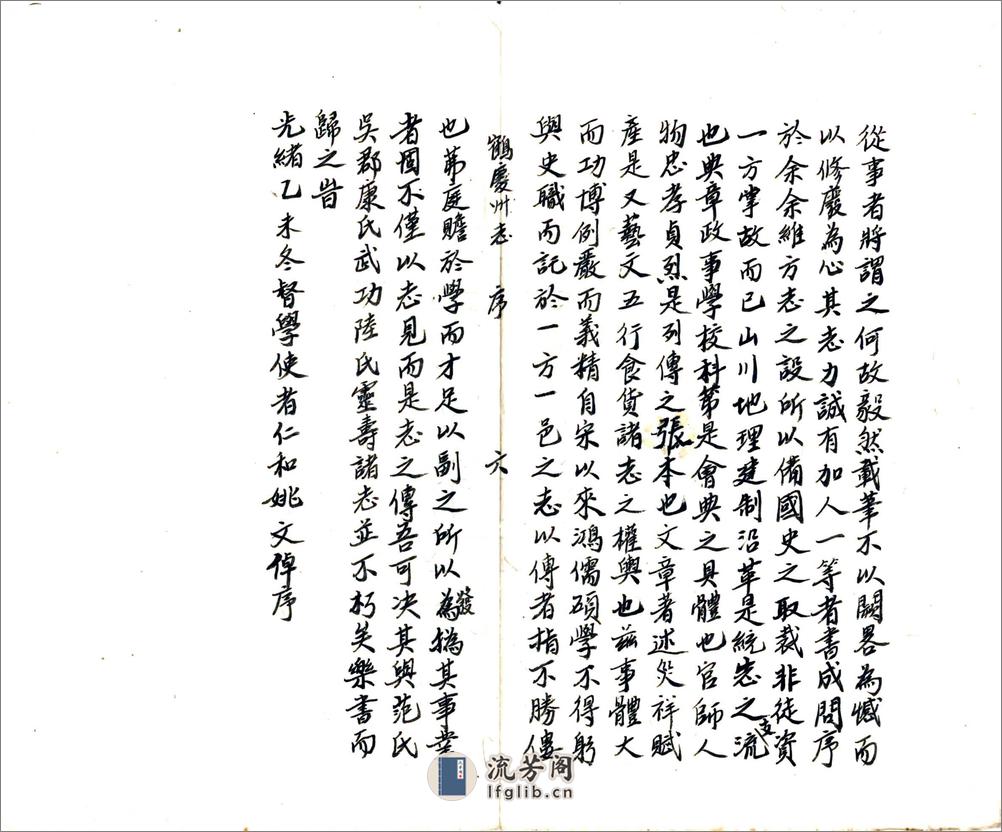 從事者將謂之何故毅然載筆不以闕畧為憾而
以修廢為心其志力誠有加人一等者書成問序
於余余維方志之設所以備國史之取裁非徒資
一方掌故而已山川地理建制沿革是統志之支流
也典章政事學校科第是會典之具體也官師人
物忠孝貞烈是列傳之張本也文章著述災祥賦
產是又藝文五行食貨諸志之權輿也茲事體大
而功博例嚴而義精自宋以來鴻儒碩學不得躬
與史職而記於一方一邑之志以傳者指不勝僂
鶴慶州志 序 六
也茀庭贍於學而才足以副之所以發為撝其事業
者固不僅以志見而是志之傳吾可决其與范氏
吳郡康氏武功陸氏靈壽諸志並不朽矣樂書而
歸之旹
光緒乙未冬督學使者仁和姚文倬序
流芳阁
lfglib.cn